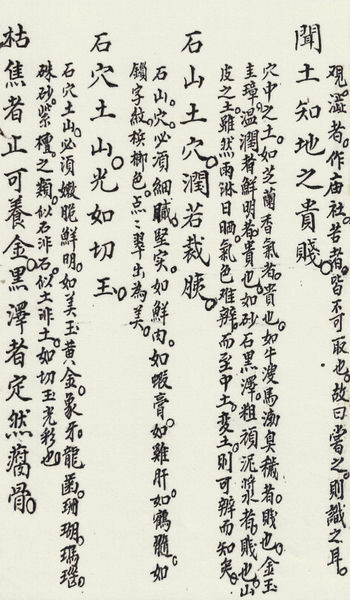 聞土知地之貴賤
覌。溢者。作庙社。苦者。皆不可取也。故曰嘗之。則識之耳。
穴中之土。如芝蘭香氣者。貴也。如牛溲馬渤臭穢者。賤也。金玉
圭璋。温潤者鮮明者。貴也。如砂石黒澤。粗頑泥漿者。賤也。山
皮之土。雖然雨淋日晒。氣色难辨。而至中土。变土。則可辨而知矣。
石山土穴。潤若裁肪。
石山。穴。必須細膩。堅实。如鮮肉。如蝦膏。如雞肝。如鶴髓。如
鎖字紋。槟榔色。点点翠出為美。
石穴土山。光如切玉。
石穴土山。必須嫩脆鮮明。如美玉黄金。象牙。龍菌。珊瑚。瑪瑙。
硃砂。紫檀。之類。似石非石。似土非土。如切玉光彩也。
枯焦者正可養金。黒澤者定然腐骨。